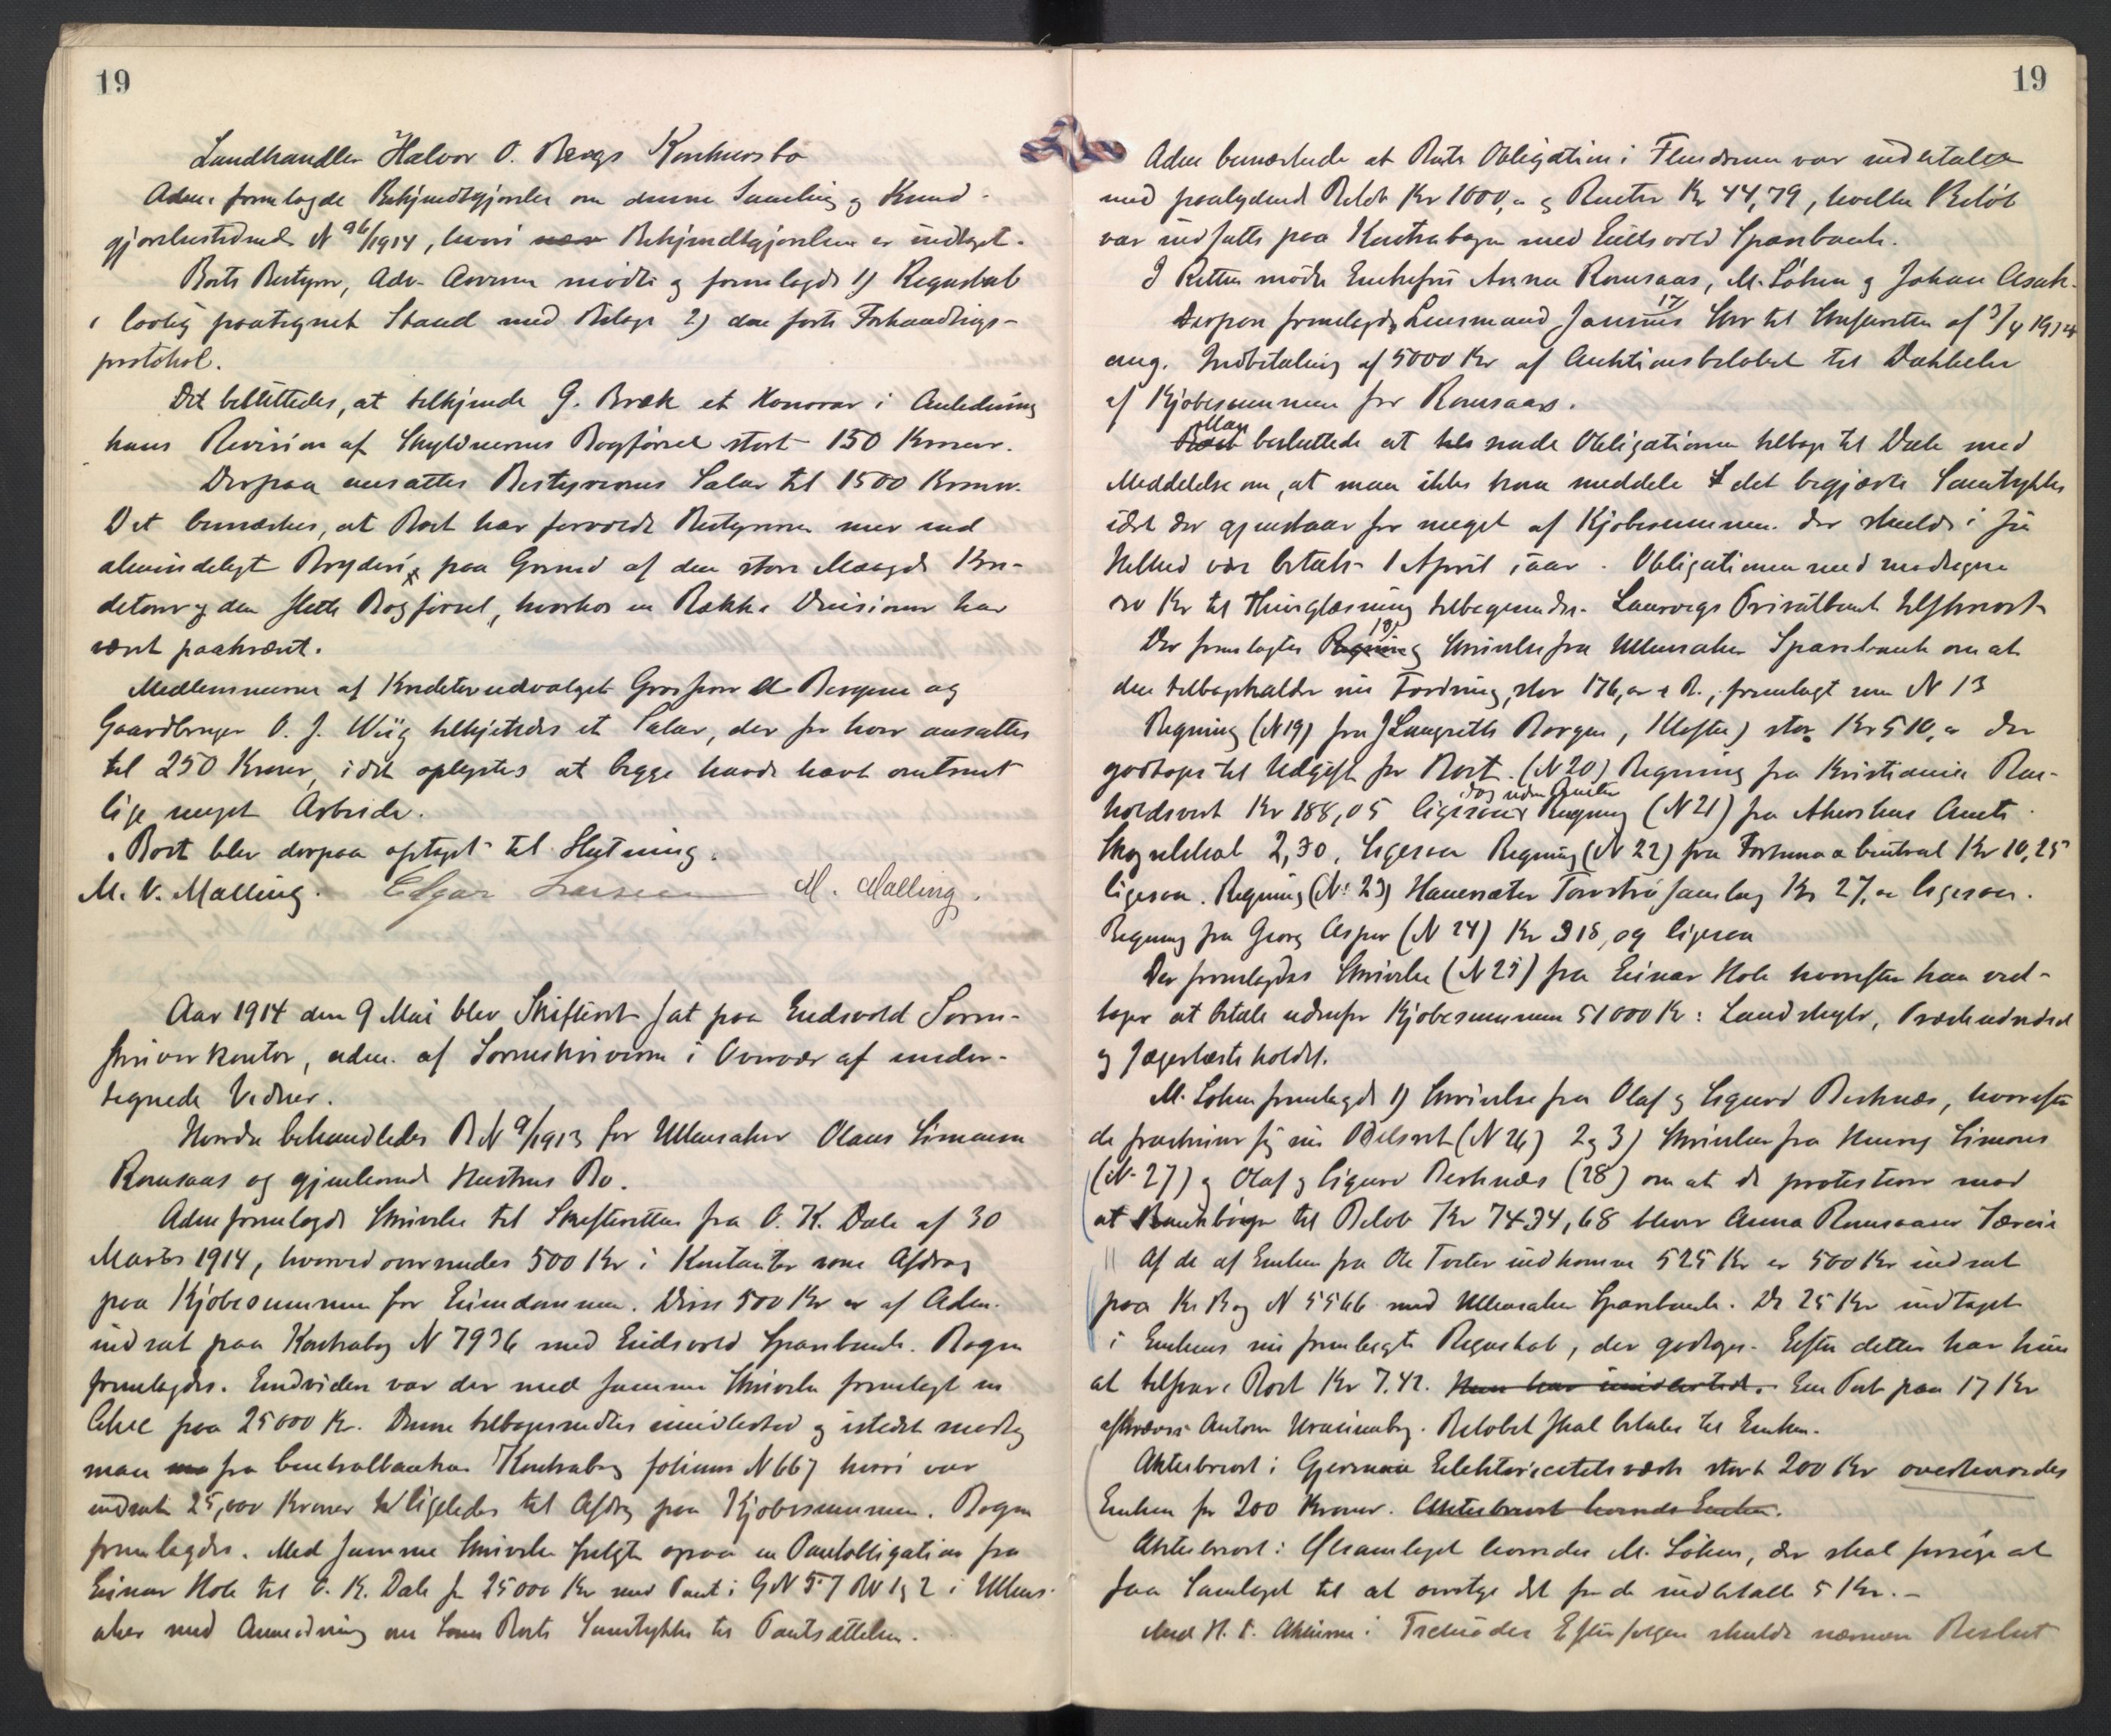 19
Landhandler Halvor O. Bergs Konkursbo
Adm. fremlagde Bekjendtgjørelse om denne Samling og Kund-
gjørelsestidende N 96/1914, hvori Bekjendtgjørelsen er indtaget.
Boets Bestyrer, Adv. mødte og fremlagde 1) Regnskab
i lovlig paategnet Stand med Bilage 2) den førte Forhandlings-
protokol.
Det besluttedes, at tilkjende G. Bræk et Honorar i Anledning
hans Revision af Skyldnerens Bogførsel stort 150 Kroner.
Derpaa ansattes Bestyrerens Salær til 1500 Kroner.
Det bemærkes, at Boet har forvoldt Bestyreren mer end
almindeligt Bryderi, paa Grund af den store Mængde Kre-
ditorer og den slette Bogførsel, hvorhos en Række Divisioner har
været paakrævet.
Medlemmerne af Kreditorudvalget Grosserer Borgen og
Gaardbruger O. J. Wiig tilkjendes et Salær, der for hver ansattes
til 250 Kroner, idet oplystes at begge havde havt omtrent
lige meget Arbeide.
Boet blev derpaa optaget til Slutning.
M. V. Malling. Edgar Larsen M. Malling.
Aar 1914 den 9 Mai blev Skifteret sat paa Eidsvold Soren-
skriverkontor, adm. af Sorenskriveren i Overvær af under-
tegnede Vidner.
Hvorda behandledes B N 9/1913 for Ullensaker Olaus Simonsen
Romsaas og gjenlevende Hustrus Bo.
Adm fremlagde Skrivelse til Skifteretten fra O. K. Dale af 30
Marts 1914, hvorved oversendes 500 Kr i Kontanter som Afdrag
paa Kjøbesummen for Eiendommen. Disse 500 Kr er af Adm.
indsat paa Kontrabog N 7936 med Eidsvold Sparebank. Bogen
fremlagdes. Endvidere var der med samme Skrivelse fremlagt en
Check paa 25000 Kr. Denne tilbagesendtes imidlertid og istedet modtog
man fra Centralbanken Kontrabog folium N 667 hvori var
indsat 25,000 Kroner ligeledes til Afdrag paa Kjøbesummen. Bogen
fremlagdes. Med samme Skrivelse fulgte ogsaa en Pantobligation fra
Einar Hole til O. K. Dale for 25000 Kr med Pant i G N 57 BN 1 og 2 i Ullens-
aker med Anmodning om Boets Samtykke til Pantsættelsen.
19
Adm bemærkede at Boets Obligation i var indbetalt
med paalydende Beløb Kr 1000,- og Renter Kr 44,79, hvilke Beløb
var indsatte paa Kontrabogen med Eidsvold Sparebank.
I Retten mødte Enkefru Anna Romsaas, M. Løken og Johan Asak.
Derpaa fremlagdes Lensmand 17 Skr til Skifteretten af 3/4 1914
ang. Indbetaling af 5000 Kr af Auktionsbeløbet til Dækkelse
af Kjøbesummen for Romsaas.
Man besluttede at sende Obligationen tilbage til Dale med
Meddelelse om, at man ikke kan meddele det begjærte Samtykke
idet der gjenstaar for meget af Kjøbesummen. Der skulde i sin
Helhed være betalt 1 April iaar. Obligationen med medsendte
Kr til Thinglæsning tilbagesendes. Laurvigs Privatbank tilskrevet
Der fremlagdes 18) Skrivelse fra Ullensaker Sparebank om at
den tilbagekalder sin Fordring, stor 176, fremlagt som N 13
Regning (N 19) fra J Langseth Borgen, Kløften) stor Kr 510,- der
godtages til Udgift for Boet. (N 20) Regning fra Kristiania
Kr 188,05 ligesaa dog uden Renter Regning (N 21) fra Akershus Amts
Skogselskab 2,30, ligesaa Regning (N 22) fra Fortuna Central Kr 10,25
ligesaa. Regning (N: 23) Hauersæter Torvstrøsamlag Kr 27,- ligesaa.
Regning fra Georg Asper (N 24) Kr 318,09 ligesaa
Der fremlagdes Skrivelse (N 25) fra Einar Hole hvorefter han ved-
tager at betale udenfor Kjøbesummen 51000 Kr: Landskyld,
og
M. Løken fremlagde 1) Skrivelse fra Olaf og Sigurd Berknæs, hvorefter
de fraskriver sig sin Odelsret (N 26) 2 og 3) Skrivelser fra Henry Simons
(N 27) og Olaf og Sigurd Berknæs (28) om at de protesterer mod
at Bankbøger til Beløb Kr 7434,68 bliver Anna Romsaases Særeie
Af de af Enken fra Ole Toverud indkomne 525 Kr er 500 Kr indsat
paa Kr Bog N 5566 med Ullensaker Sparebank. De 25 Kr indtaget
i Enkens nu fremlagte Regnskab, der godtages. Efter dette har hun
at tilsvare Boet Kr 7.42. Hun har imidlertid. En Post paa 17 Kr
afkræves Anton . Beløbet skal betales til Enken.
Aktiebrevet i Gjermaa Elektricitetsværk stort 200 Kr overtoges
Enken for 200 Kroner. Aktiebrevet Enken.
Aktiebrevet i Ølsamlaget M. Løken, der skal forsøge at
faa Samlaget til at overtage det for de indbetalte 5 Kr.-
Med H. t. Aktierne i Efterfølger skulde nærmere Beslut